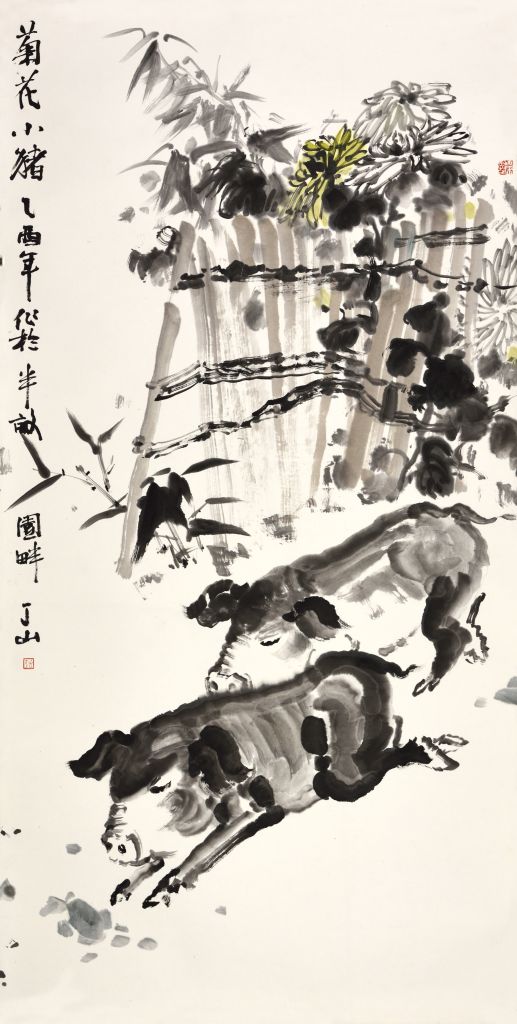 菊花小猪乙酉年作於半畝園畔丁山